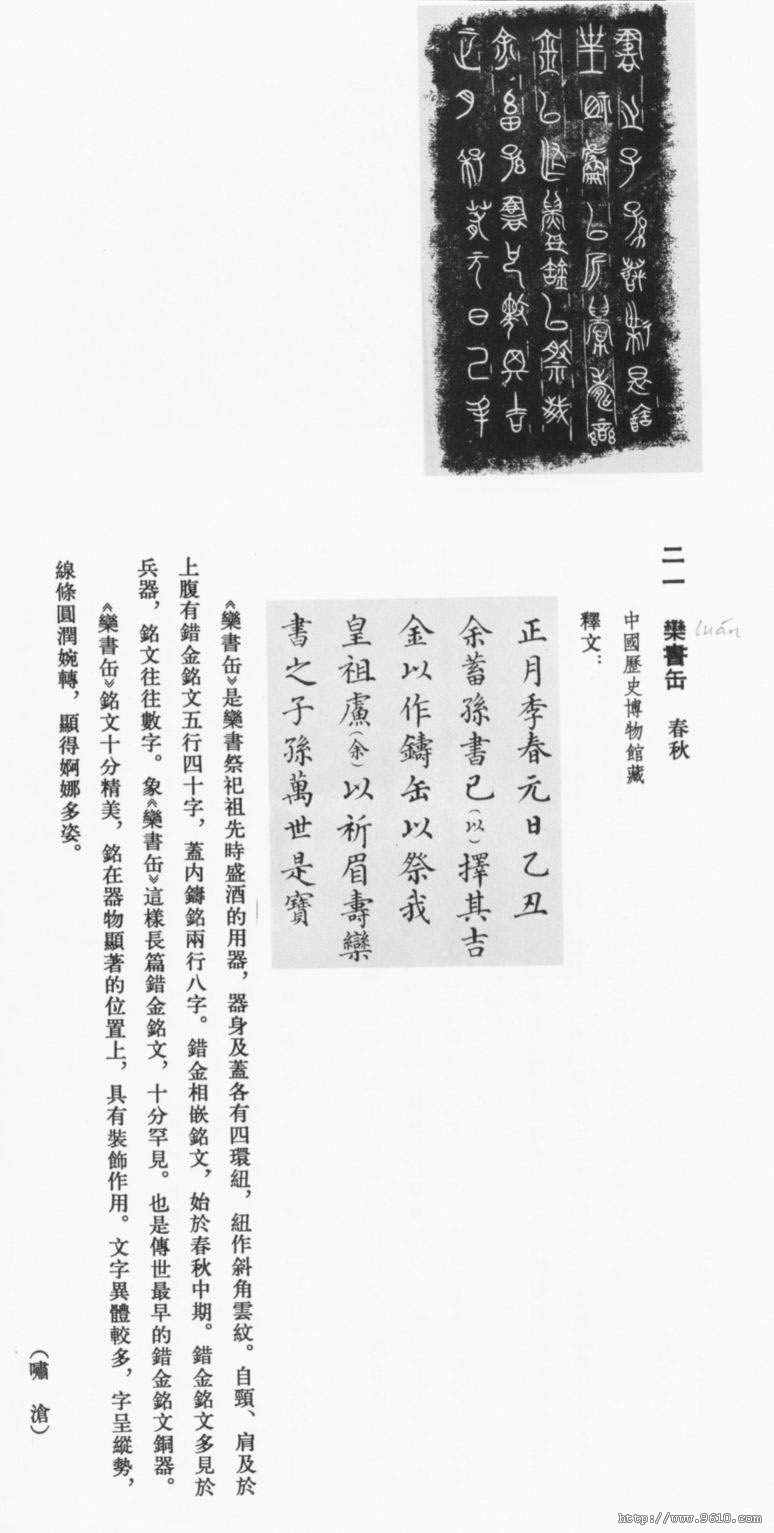 二一 欒書缶 春秋
luán
中國歷史博物館藏
釋文：
正月季春元日乙丑
余蓄孫書已（以）擇其吉
金以作鑄缶以祭我
皇祖虘（余）以祈眉壽欒
書之子孫萬世是寶
《欒書缶》是欒書祭祀祖先時盛酒的用器，器身及蓋各有四環紐，紐作斜角雲紋。自頸、肩及於
上腹有錯金銘文五行四十字，蓋内鑄銘兩行八字。錯金相嵌銘文，始於春秋中期。錯金銘文多見於
兵器，銘文往往數字。象《欒書缶》這樣長篇錯金銘文，十分罕見。也是傳世最早的錯金銘文銅器。
《欒書缶》銘文十分精美，銘在器物顯著的位置上，具有裝飾作用。文字異體較多，字呈縱勢，
線條圓潤婉轉，顯得婀娜多姿。
（嘯 滄）
http://www.9610.com